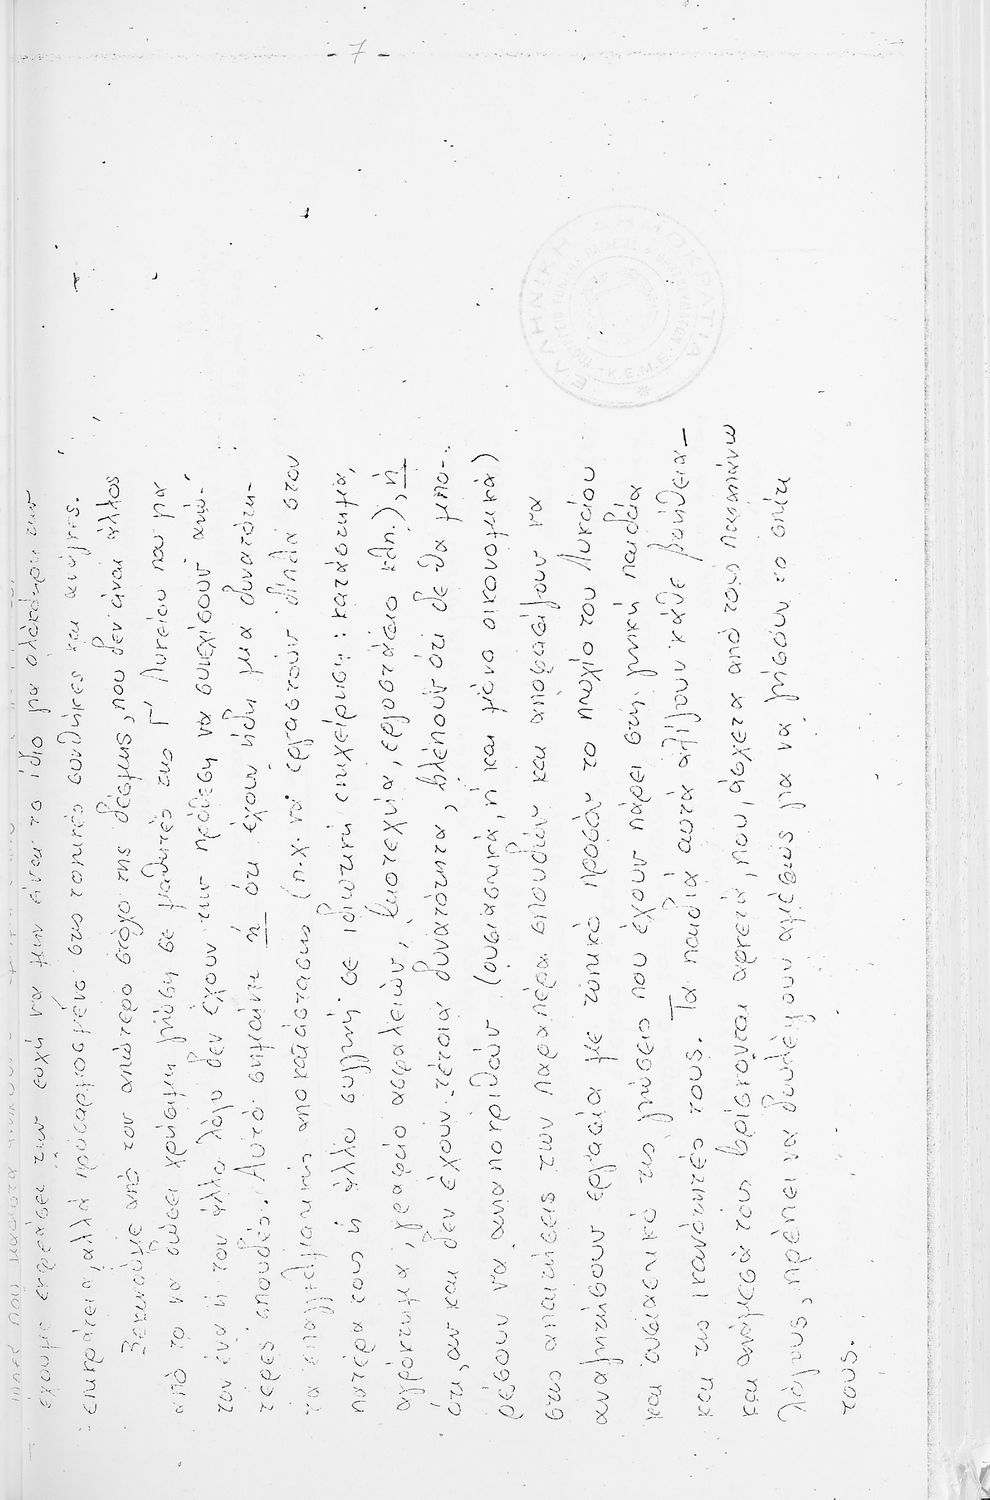 - 7 -
έχουμε εκφράσει την ευχή να μην είναι το ίδιο για ολόκληρη την
επικράτεια, αλλά προσαρμοσμένο στις τοπικές συνθήκες και ανάγκες.
Ξεκινούμε από τον απώτερο στόχο της δέσμης, που δεν είναι άλλος
από το να δώσει χρήσιμη γνώση σε μαθητές της Γ' Λυκείου που για
τον ένα ή τον άλλο λόγο δεν έχουν την πρόθεση να συνεχίσουν ανώ-
τερες σπουδές. Αυτό σημαίνει ή ότι έχουν ήδη μια δυνατότη-
τα επαγγελματικής αποκατάστασης (π.χ. να εργαστούν δίπλα στον
πατέρα τους ή άλλο συγγενή σε ιδιωτική επιχείρηση: κατάστημα,
αγρόκτημα, γραφείο ασφαλειών, βιοτεχνία, εργοστάσιο κλπ.), ή
ότι, αν και δεν έχουν τέτοια δυνατότητα, βλέπουν ότι δε θα μπο-
ρέσουν να ανταποκριθούν (ουσιαστικά, ή και μόνο οικονομικά)
στις απαιτήσεις των παραπέρα σπουδών και αποφασίζουν να
αναζητήσουν εργασία με τυπικό προσόν το πτυχίο του Λυκείου
και ουσιαστικό τις γνώσεις που έχουν πάρει στη γενική παιδεία
και τις ικανότητές τους. Τα παιδιά αυτά αξίζουν κάθε βοήθεια-
και ανάμεσά τους βρίσκονται αρκετά, που, άσχετα από τους παραπάνω
λόγους, πρέπει να δουλέψουν αμέσως για να ζήσουν το σπίτι
τους.
ΕΛΛΗΝΙΚΗ ΔΗΜΟΚΡΑΤΙΑ
Κ.Ε.Μ.Ε.